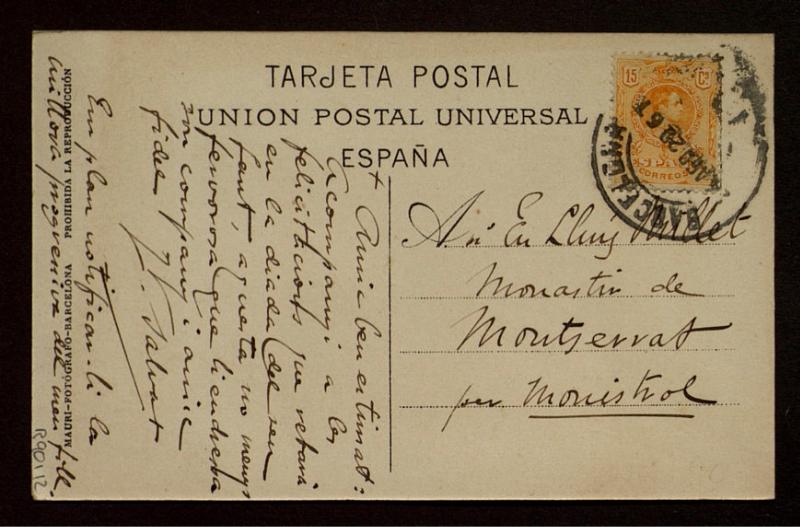 TARJETA POSTAL
UNION POSTAL UNIVERSAL
ESPAÑA
15 Cs
ESPAÑA
CORREOS
BARCELONA
AGO 20 6T
En Lluis Millet
Monastir de
Montserrat
per Monistrol
+ Amic ben estimat:
Acompanyi a les
felicitacions que rebrà
en la diada del seu
Sant, aquesta no menys
fervorosa que li endressa
son company i amic
fidel
Salvat
Em plau notificar-li la
millora progressiva del meu fill.
MAURI-FOTÓGRAFO-BARCELONA PROHIBIDA LA REPRODUCCIÓN
R90112